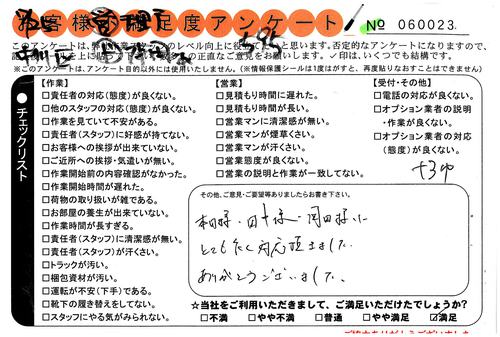 お客様満足度アンケート
№ 060023
このアンケートは、
レベル向上に役
と思います。否定的なアンケートになりますので、
正直なご意見をお願いします。✓印は、いくつでも結構です。
※このアンケートは、アンケート目的以外には使用いたしません。(※情報保護シールは1度はがすと、再度貼りなおすことはできません)
チェックリスト
【作業】
□責任者の対応(態度)が良くない。
□他のスタッフの対応(態度)が良くない。
□作業を見ていて不安がある。
□責任者(スタッフ)に好感が持てない。
□お客様への挨拶が出来ていない。
□ご近所への挨拶・気遣いが無い。
□作業開始前の内容確認がなかった。
□作業開始時間が遅れた。
□荷物の取り扱いが雑である。
□お部屋の養生が出来ていない。
□作業時間が長すぎる。
□責任者(スタッフ)に清潔感が無い。
□責任者(スタッフ)が汗くさい。
□トラックが汚い。
□梱包資材が汚い。
□運転が不安(下手)である。
□靴下の履き替えをしてない。
□スタッフにやる気がみられない。
【営業】
□見積もり時間に遅れた。
□見積もり時間が長い。
□営業マンに清潔感が無い。
□営業マンが煙草くさい。
□営業マンが汗くさい。
□営業態度が良くない。
□営業の説明と作業が一致してない。
【受付・その他】
□電話の対応が良くない。
□オプション業者の説明
・作業が良くない。
□オプション業者の対応
(態度)が良くない。
その他、ご意見・ご要望等ありましたらお書き下さい。
とても良く対応頂きました。
ありがとうございました。
☆当社をご利用いただきまして、ご満足いただけたでしょうか?
□不満 □やや不満 □普通 □やや満足 ☑満足